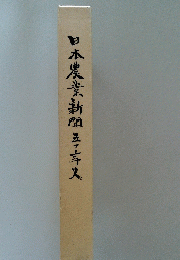 日本農業新聞五十年史